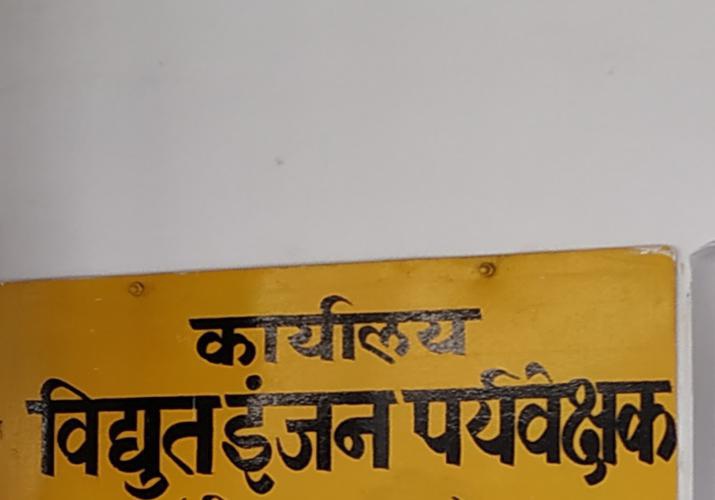 कार्यालय
विद्युत इंजन पर्यवेक्षक